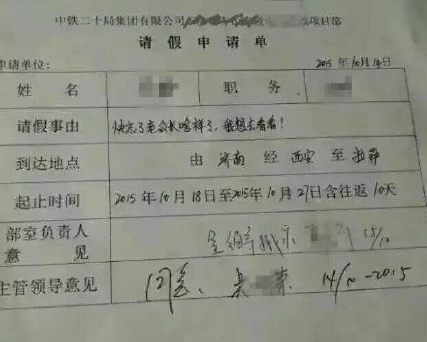 中铁二十局集团有限公司 项目部
请 假 申 请 单
申请单位: 2015年10月14日
姓 名 职 务
请假事由 快忘了老公长啥样了,我想去看看!
到达地点 由 济南 经 西安 至 拉萨
起止时间 2015年10月18日至2015年10月27日含往返10天
部室负责人
意 见 15/10
主管领导意见 同意、 14/10-2015